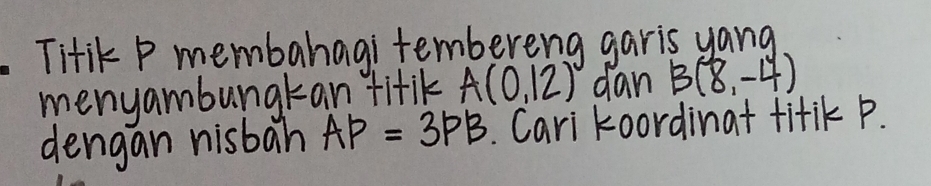 . Titik P membahagi tembereng garis yang
menyambungkan titik A(0,12) dan B(8,-4)
dengan nisbah AP = 3PB. Cari koordinat titik P.